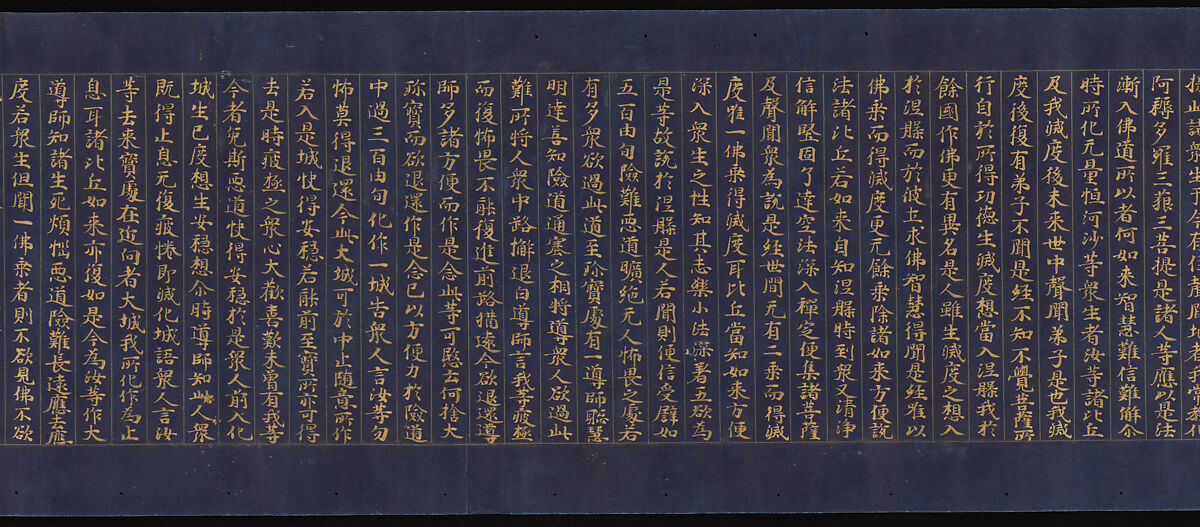 提此諸衆生于今有住聲聞地者我常教化
阿耨多羅三藐三菩提是諸人等應以是法
漸入佛道所以者何如來智慧難信難解尒
時所化无量恒河沙等衆生者汝等諸比丘
及我滅度後未來世中聲聞弟子是也我滅
度後復有弟子不聞是經不知不覺菩薩所
行自於所得功德生滅度想當入涅槃我於
餘國作佛更有異名是人雖生滅度之想入
於涅槃而於彼土求佛智慧得聞是經唯以
佛乘而得滅度更无餘乘除諸如來方便說
法諸比丘若如來自知涅槃時到衆又清淨
信解堅固了達空法深入禪定便集諸菩薩
及聲聞衆為說是經世間无有二乘而得滅
度唯一佛乘得滅度耳比丘當知如來方便
深入衆生之性知其志樂小法深著五欲為
是等故說於涅槃是人若聞則便信受譬如
五百由旬險難惡道曠絶无人怖畏之處若
有多衆欲過此道至珎寶處有一導師聰慧
明達善知險道通塞之相將導衆人欲過此
難所將人衆中路懈退白導師言我等疲極
而復怖畏不能復進前路猶遠今欲退還導
師多諸方便而作是念此等可愍云何捨大
珎寶而欲退還作是念已以方便力於險道
中過三百由旬化作一城告衆人言汝等勿
怖莫得退還今此大城可於中止隨意所作
若入是城快得安穩若能前至寶所亦可得
去是時疲極之衆心大歡喜歎未曾有我等
今者免斯惡道快得安穩於是衆人前入化
城生已度想生安穩想尒時導師知此人衆
既得止息无復疲惓即滅化城語衆人言汝
等去來寶處在近向者大城我所化作為止
息耳諸比丘如來亦復如是今為汝等作大
導師知諸生死煩惱惡道險難長遠應去應
度若衆生但聞一佛乘者則不欲見佛不欲